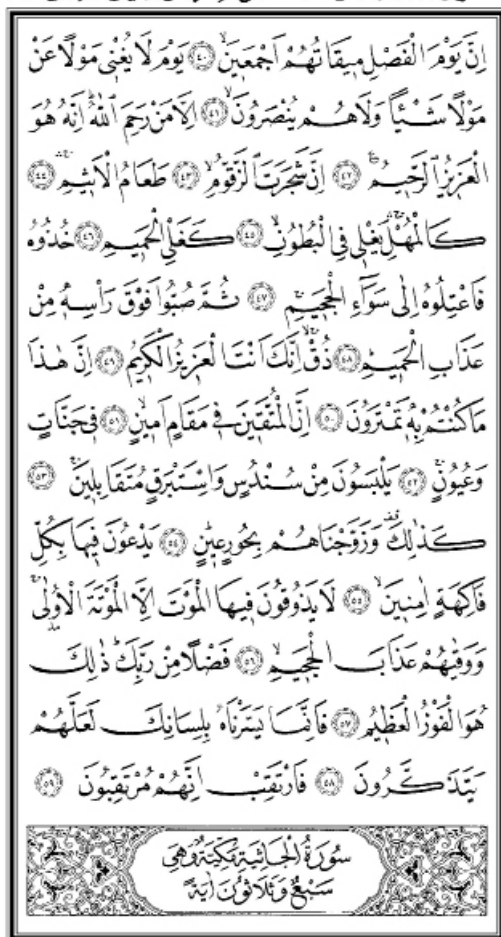 اِنَّ يَوْمَ الْفَصْلِ مٖيقَاتُهُمْ اَجْمَعٖينَۙ ﴿٤٠﴾ يَوْمَ لَا يُغْنٖى مَوْلًا عَنْ
مَوْلًا شَيْـًٔا وَلَا هُمْ يُنْصَرُونَۙ ﴿٤١﴾ اِلَّا مَنْ رَحِمَ اللّٰهُؕ اِنَّهُ هُوَ
الْعَزٖيزُ الرَّحٖيمُࣖ ﴿٤٢﴾ اِنَّ شَجَرَتَ الزَّقُّومِۙ ﴿٤٣﴾ طَعَامُ الْاَثٖيمِۚ ﴿٤٤﴾
كَالْمُهْلِۚ يَغْلٖى فِى الْبُطُونِۙ ﴿٤٥﴾ كَغَلْىِ الْحَمٖيمِ ﴿٤٦﴾ خُذُوهُ
فَاعْتِلُوهُ اِلٰى سَوَٓاءِ الْجَحٖيمِۗ ﴿٤٧﴾ ثُمَّ صُبُّوا فَوْقَ رَاْسِهٖ مِنْ
عَذَابِ الْحَمٖيمِؕ ﴿٤٨﴾ ذُقْۙ اِنَّكَ اَنْتَ الْعَزٖيزُ الْكَرٖيمُ ﴿٤٩﴾ اِنَّ هٰذَا
مَا كُنْتُمْ بِهٖ تَمْتَرُونَ ﴿٥٠﴾ اِنَّ الْمُتَّقٖينَ فٖى مَقَامٍ اَمٖينٍۙ ﴿٥١﴾ فٖى جَنَّاتٍ
وَعُيُونٍۚ ﴿٥٢﴾ يَلْبَسُونَ مِنْ سُنْدُسٍ وَاِسْتَبْرَقٍ مُتَقَابِلٖينَۚ ﴿٥٣﴾
كَذٰلِكَ وَزَوَّجْنَاهُمْ بِحُورٍ عٖينٍؕ ﴿٥٤﴾ يَدْعُونَ فٖيهَا بِكُلِّ
فَاكِهَةٍ اٰمِنٖينَۙ ﴿٥٥﴾ لَا يَذُوقُونَ فٖيهَا الْمَوْتَ اِلَّا الْمَوْتَةَ الْاُولٰىۚ
وَوَقٰيهُمْ عَذَابَ الْجَحٖيمِۙ ﴿٥٦﴾ فَضْلًا مِنْ رَبِّكَؕ ذٰلِكَ
هُوَ الْفَوْزُ الْعَظٖيمُ ﴿٥٧﴾ فَاِنَّمَا يَسَّرْنَاهُ بِلِسَانِكَ لَعَلَّهُمْ
يَتَذَكَّرُونَ ﴿٥٨﴾ فَارْتَقِبْ اِنَّهُمْ مُرْتَقِبُونَ ﴿٥٩﴾
سُورَةُ الْجَاثِيَةِ مَكِّيَّةٌ وَهِىَ
سَبْعٌ وَثَلَاثُونَ اٰيَةً